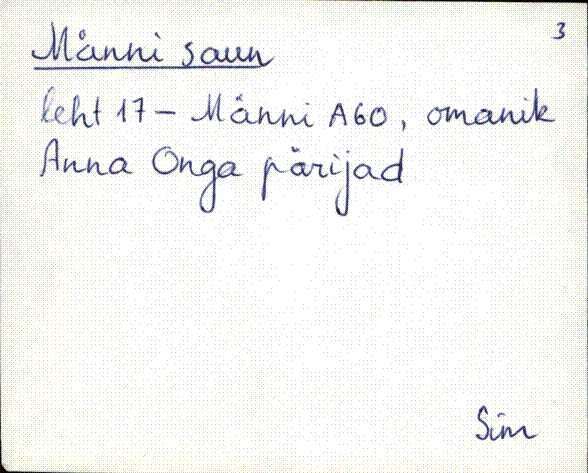 3
Männi saun
leht 17 – Männi A60, omanik
Anna Onga pärijad
Sim